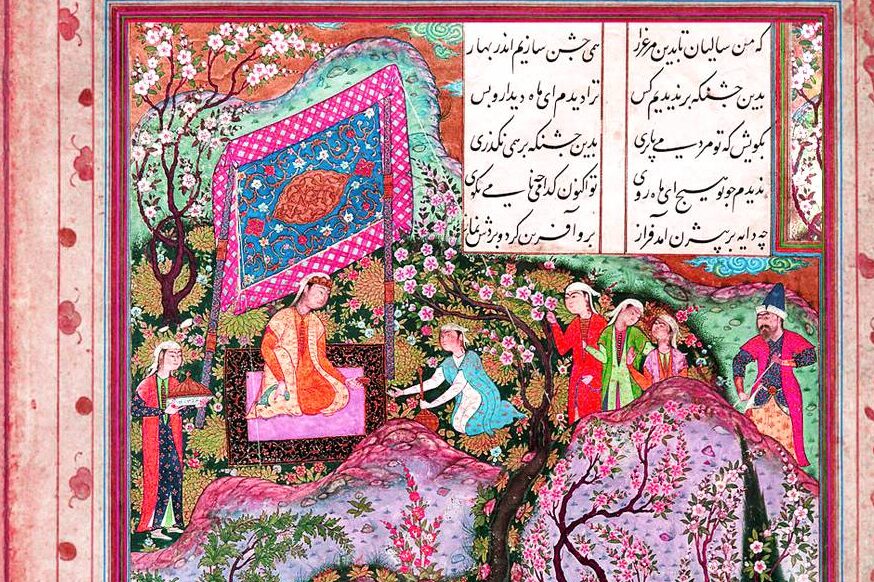 که من سالیان تا بدین مرغزار همی جشن سازیم اندر بهار
بدین جشنکه بر ندیدیم کس ترا دیدم ای ماه دیدار و بس
بکویش که تو مردمی یا پری بدین جشنکه بر همی نکذری
ندیدم چو تو هیچ ای ماه روی تو اکنون کدامی
چه دایه بر بیژن آمد فراز برو آفرین کرد و بردش نماز